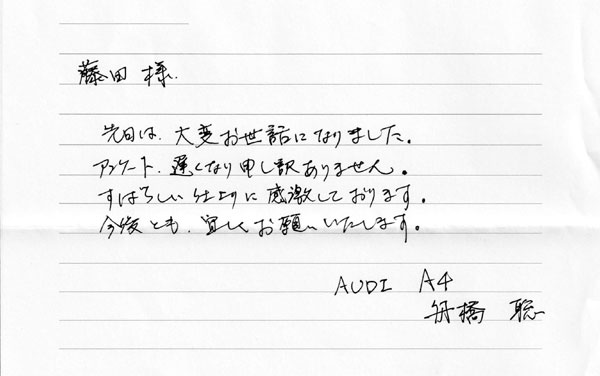 藤田 様.
先日は、大変お世話になりました。
アンケート、遅くなり申し訳ありません。
すばらしい仕上りに感激しております。
今後とも、宜しくお願いいたします。
AUDI A4
舟橋 聡